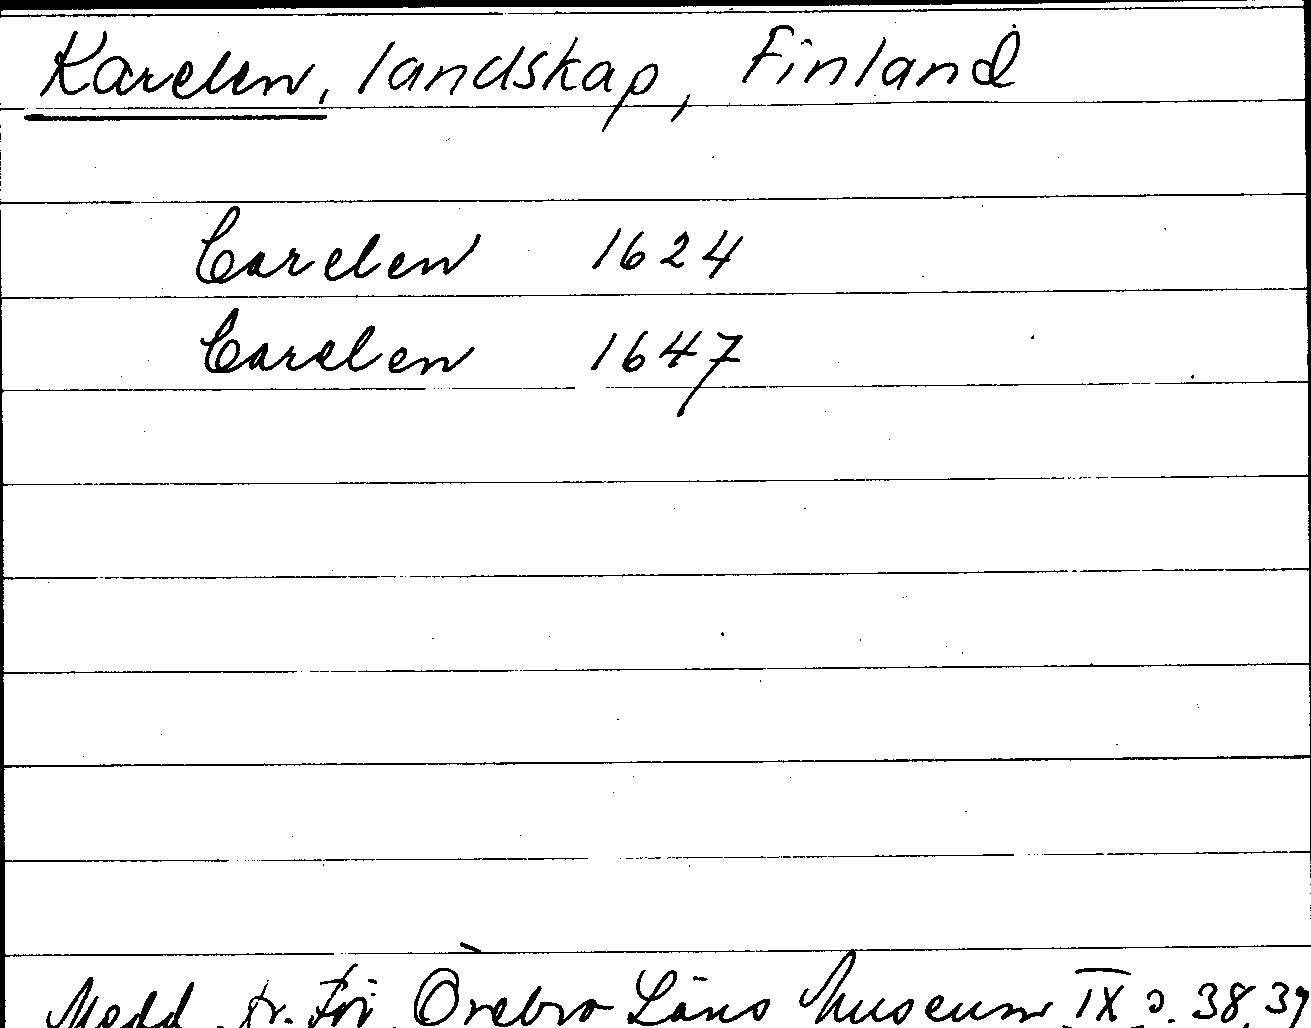 Karelen, landskap, Finland
Carelen 1624
Carelen 1647
Medd. fr. För. Örebro Läns Museum IX s. 38, 39